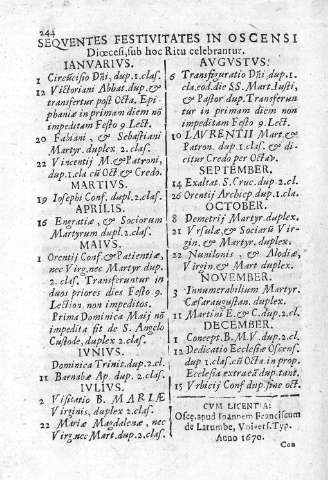 244
SEQVENTES FESTIVITATES IN OSCENSI
Diœcesi, sub hoc Ritu celebrantur.
IANVARIVS.
1 Circūcisio Dñi, dup. 1. clas.
12 Victoriani Abbat. dup. &
transfertur post Octa. Epi-
phaniæ in primam diem nõ
impeditam Festo 9 Lect.
20 Fabiani, & Sebastiani
Martyr. duplex 2. clas.
22 Vincentij M. & Patroni,
dup. 1. cla cū Oct & Credo.
MARTIVS.
19 Iosephi Conf. dupl. 2. clas.
APRILIS.
16 Engratiæ, & Sociorum
Martyrum dupl. 2. clas.
MAIVS.
1 Orentij Conf. & Patientiæ,
nec Virg. nec Martyr. dup.
2. clas. Transferuntur in
duos priores dies Festo 9.
Lection. non impeditos.
Prima Dominica Maij nõ
impedita fit de S. Angelo
Custode, duplex 2. clas.
IVNIVS.
Dominica Trinit. dup. 2. cl.
11 Barnabæ Ap. dup. 2. clas.
IVLIVS.
2 Visitatio B. MARIÆ
Virginis, duplex 2 clas.
22 Mariæ Magdalenæ, nec
Virg. nec Mart. dup. 2. cl.
AVGVSTVS.
6 Transfiguratio Dñi, dup. 1.
cla. eod. die SS. Mart. Iusti,
& Pastor dup. Transferun
tur in primam diem non
impeditam Festo 9. Lect.
10 LAVRENTII Mart. &
Patron. dup. 1. clas. & di-
citur Credo per Octav.
SEPTEMBER.
14 Exaltat. S. Cruc. dup. 2. cl.
26 Orentij Archiep. dup. 1. cla.
OCTOBER.
8 Demetrij Martyr. duplex.
21 Vrsulæ, & Sociarū Vir-
gin. & Martyr. duplex.
22 Nunilonis, & Alodiæ,
Virgin. & Mart duplex.
NOVEMBER.
3 Innumerabilium Martyr.
Cæsaraugustan. duplex.
11 Martini E. & C. dup. 2. cl.
DECEMBER.
1 Concept. B. M. V. dup. 2. cl.
12 Dedicatio Ecclesiæ Oscens.
dup. 1. clas. cū Octa in prop.
Ecclesia extra eã dup. tant.
15 Vrbicij Conf dup. sine oct.
CVM LICENTIA:
Oscę, apud Ioannem Franciscum
de Larumbe, Vniuers. Typ.
Anno 1670.
Con